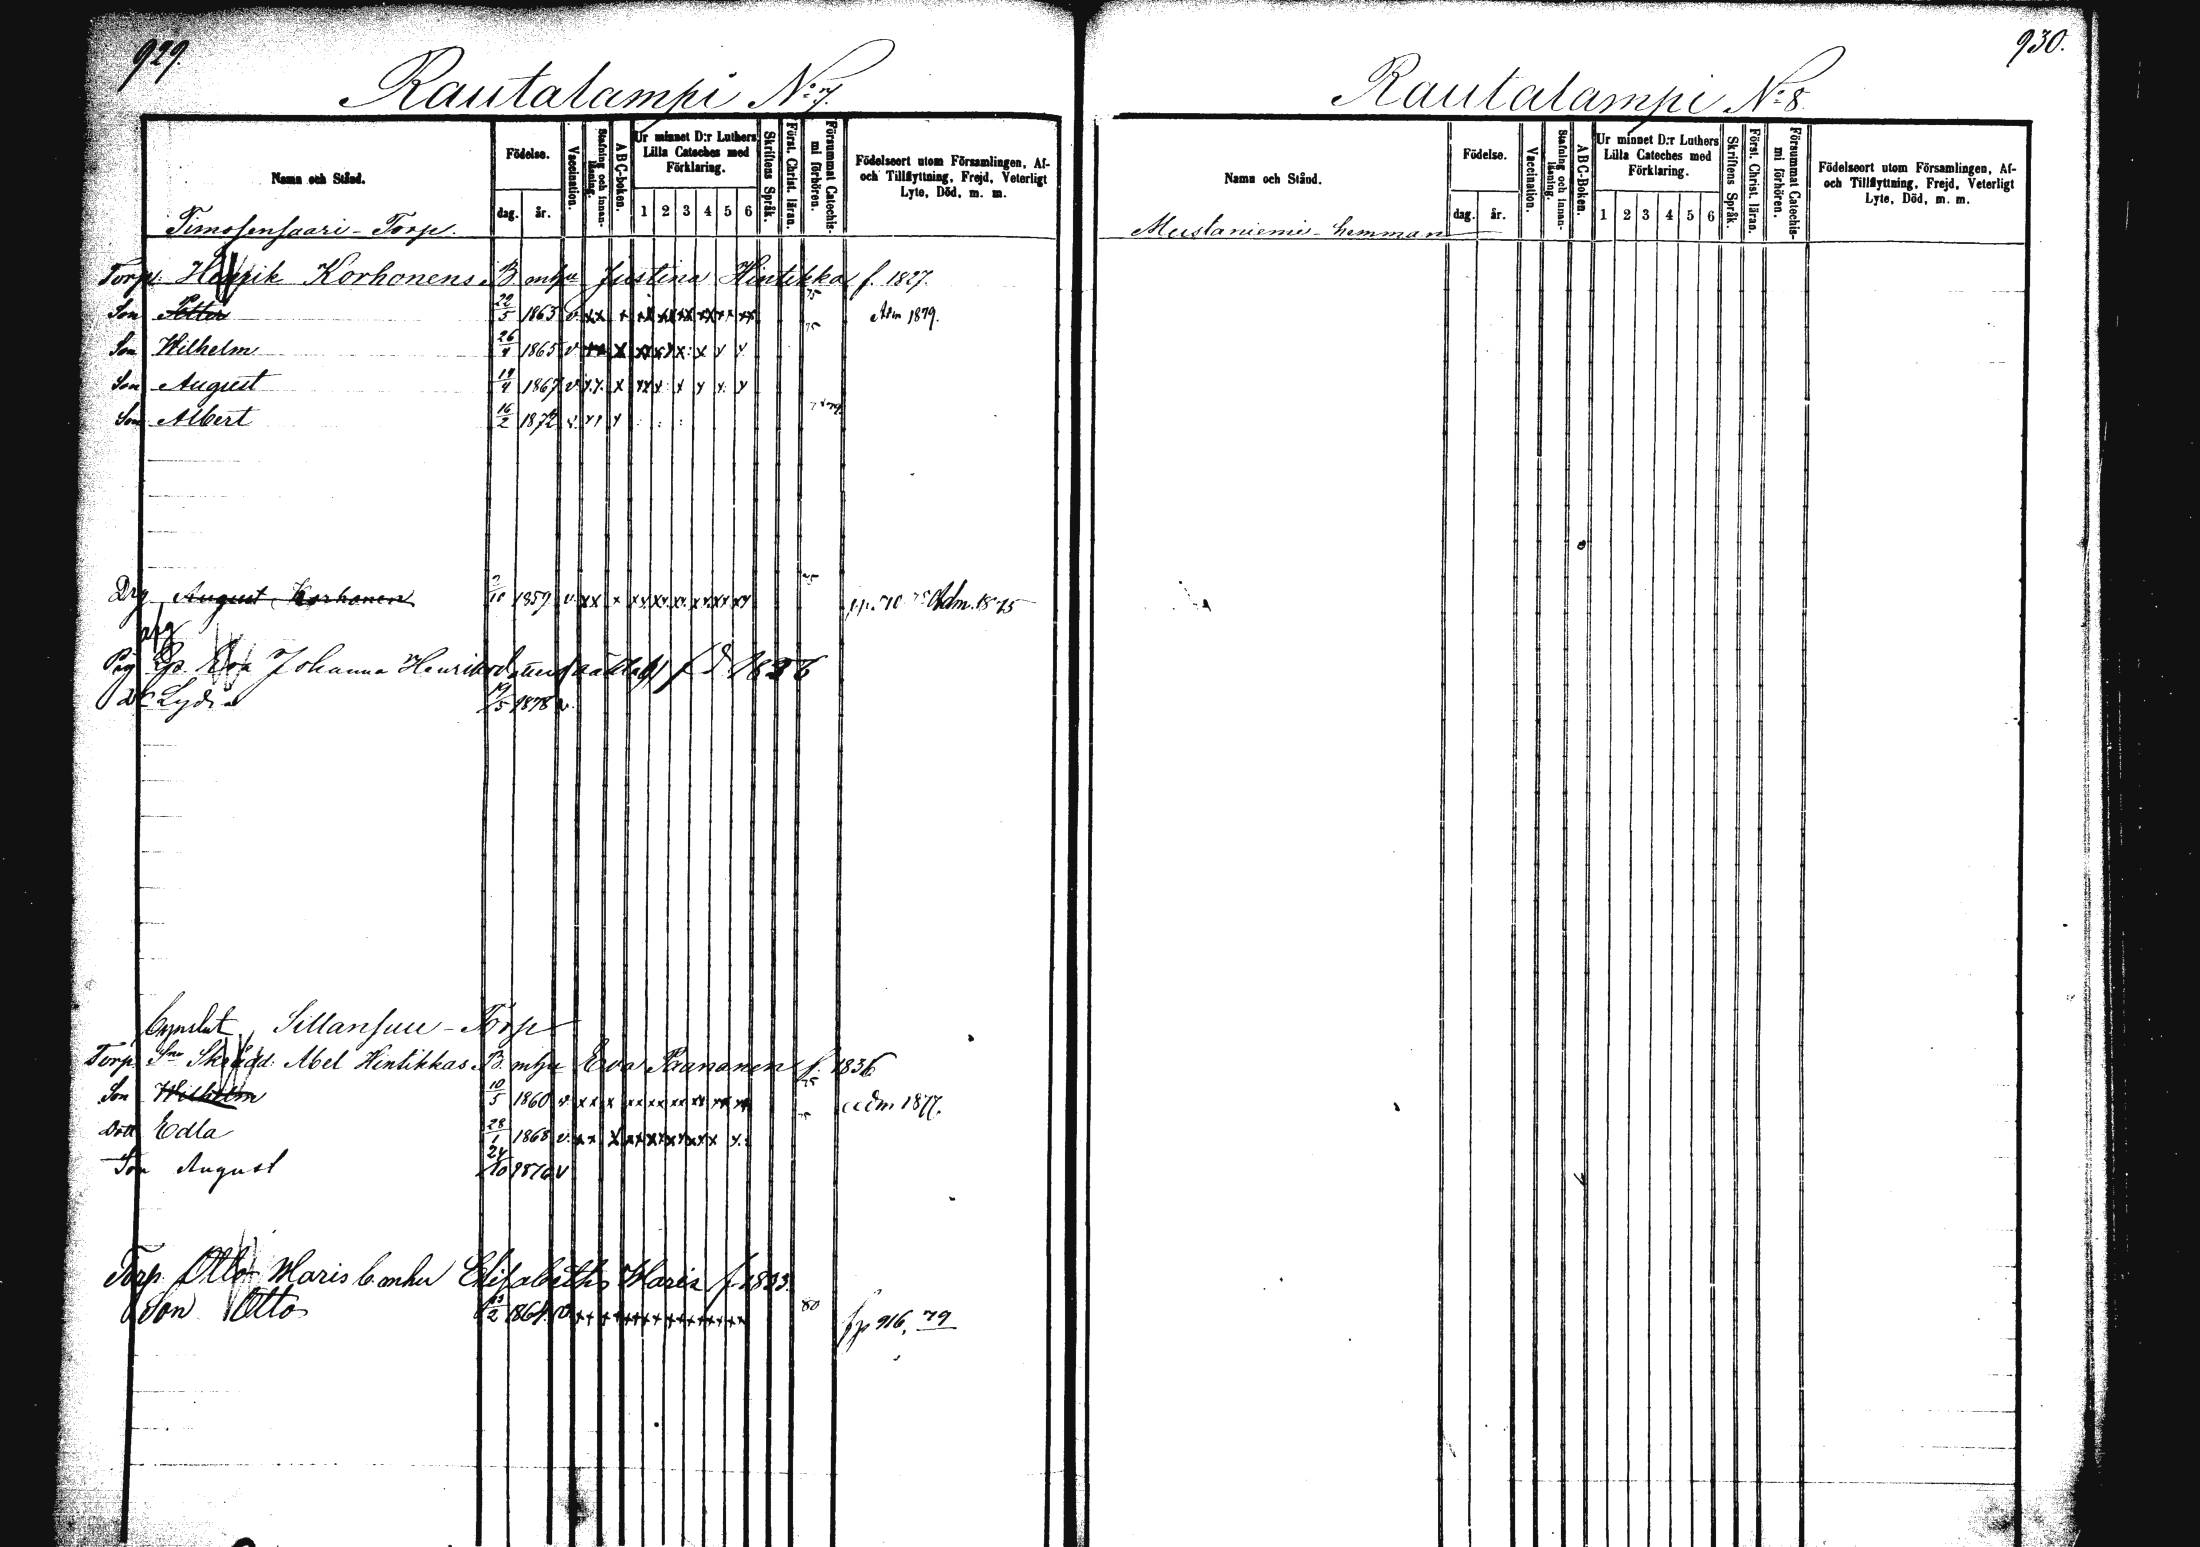 929
Rautalampi N:o 7.
Namn och Stånd.
Födelse.
dag.
år.
Vaccination.
Stafning och innanläsning.
ABC-boken.
Ur minnet D:r Luthers Lilla Cateches med Förklaring.
1 2 3 4 5 6
Skriftens Språk.
Först. Christ. läran.
Försummat Catechismi förhören.
Födelseort utom Församlingen, Af- och Tillflyttning, Frejd, Veterligt Lyte, Död, m. m.
Timosensaari - Torp.
Torp. Henrik Korhonens B. mhu Justina Hintikka f. 1827.
Son Petter 22/5 1863 v. xx x xx xx xx xx xx xx 75 Adm 1879.
Son Wilhelm 26/4 1865 v xx x xx xx x x x x 75
Son August 19/4 1867 v x.x. x xx x x x x x
Son Albert 16/2 1872 v. x x x
Drg August Korhonen 2/10 1859 v. xx x xx xx xx xx xx xx 75 Adm. 1875
Lydia 19/5 1878 v.
Sillansuu - Torp
Torp. Skrädd: Abel Hintikkas B. mhu Eva Paananen f. 1836
Son Wilhelm 10/5 1860 v. xx x xx xx xx xx xx xx 75 Adm 1877.
Dott Edla 28/1 1868 v. xx x xx xx xx xx x x. 75
Son August 24/10 1876 v
Torp Otto Maris b mhu Elisabeth Maria f 1833.
Son Otto 13/2 1864 v. xx xx xx xx xx xx xx xx 80 fp 916, 79
930.
Rautalampi N:o 8.
Namn och Stånd.
Födelse.
dag.
år.
Vaccination.
Stafning och innanläsning.
ABC-Boken.
Ur minnet D:r Luthers Lilla Cateches med Förklaring.
1 2 3 4 5 6
Skriftens Språk.
Först. Christ. läran.
Försummat Catechismi förhören.
Födelseort utom Församlingen, Af- och Tillflyttning, Frejd, Veterligt Lyte, Död, m. m.
Mustaniemi - hemman